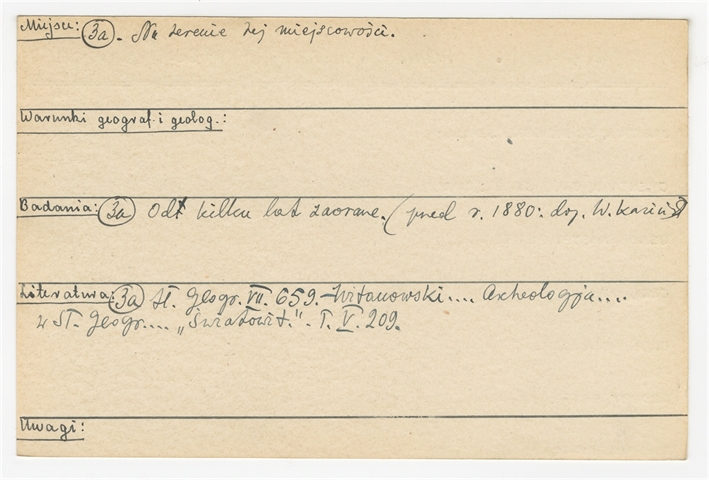 Miejsce: 3a. Na terenie tej miejscowości.
Warunki geograf. i geolog.:
Badania: 3a Od kilku lat zaorane. (przed r. 1880: dop. W.
Literatura: 3a Sł. Geogr. VII. 659. - Witanowski.... Archeologja....
w Sł. Geogr.... „Światowit." T. V. 209.
Uwagi: